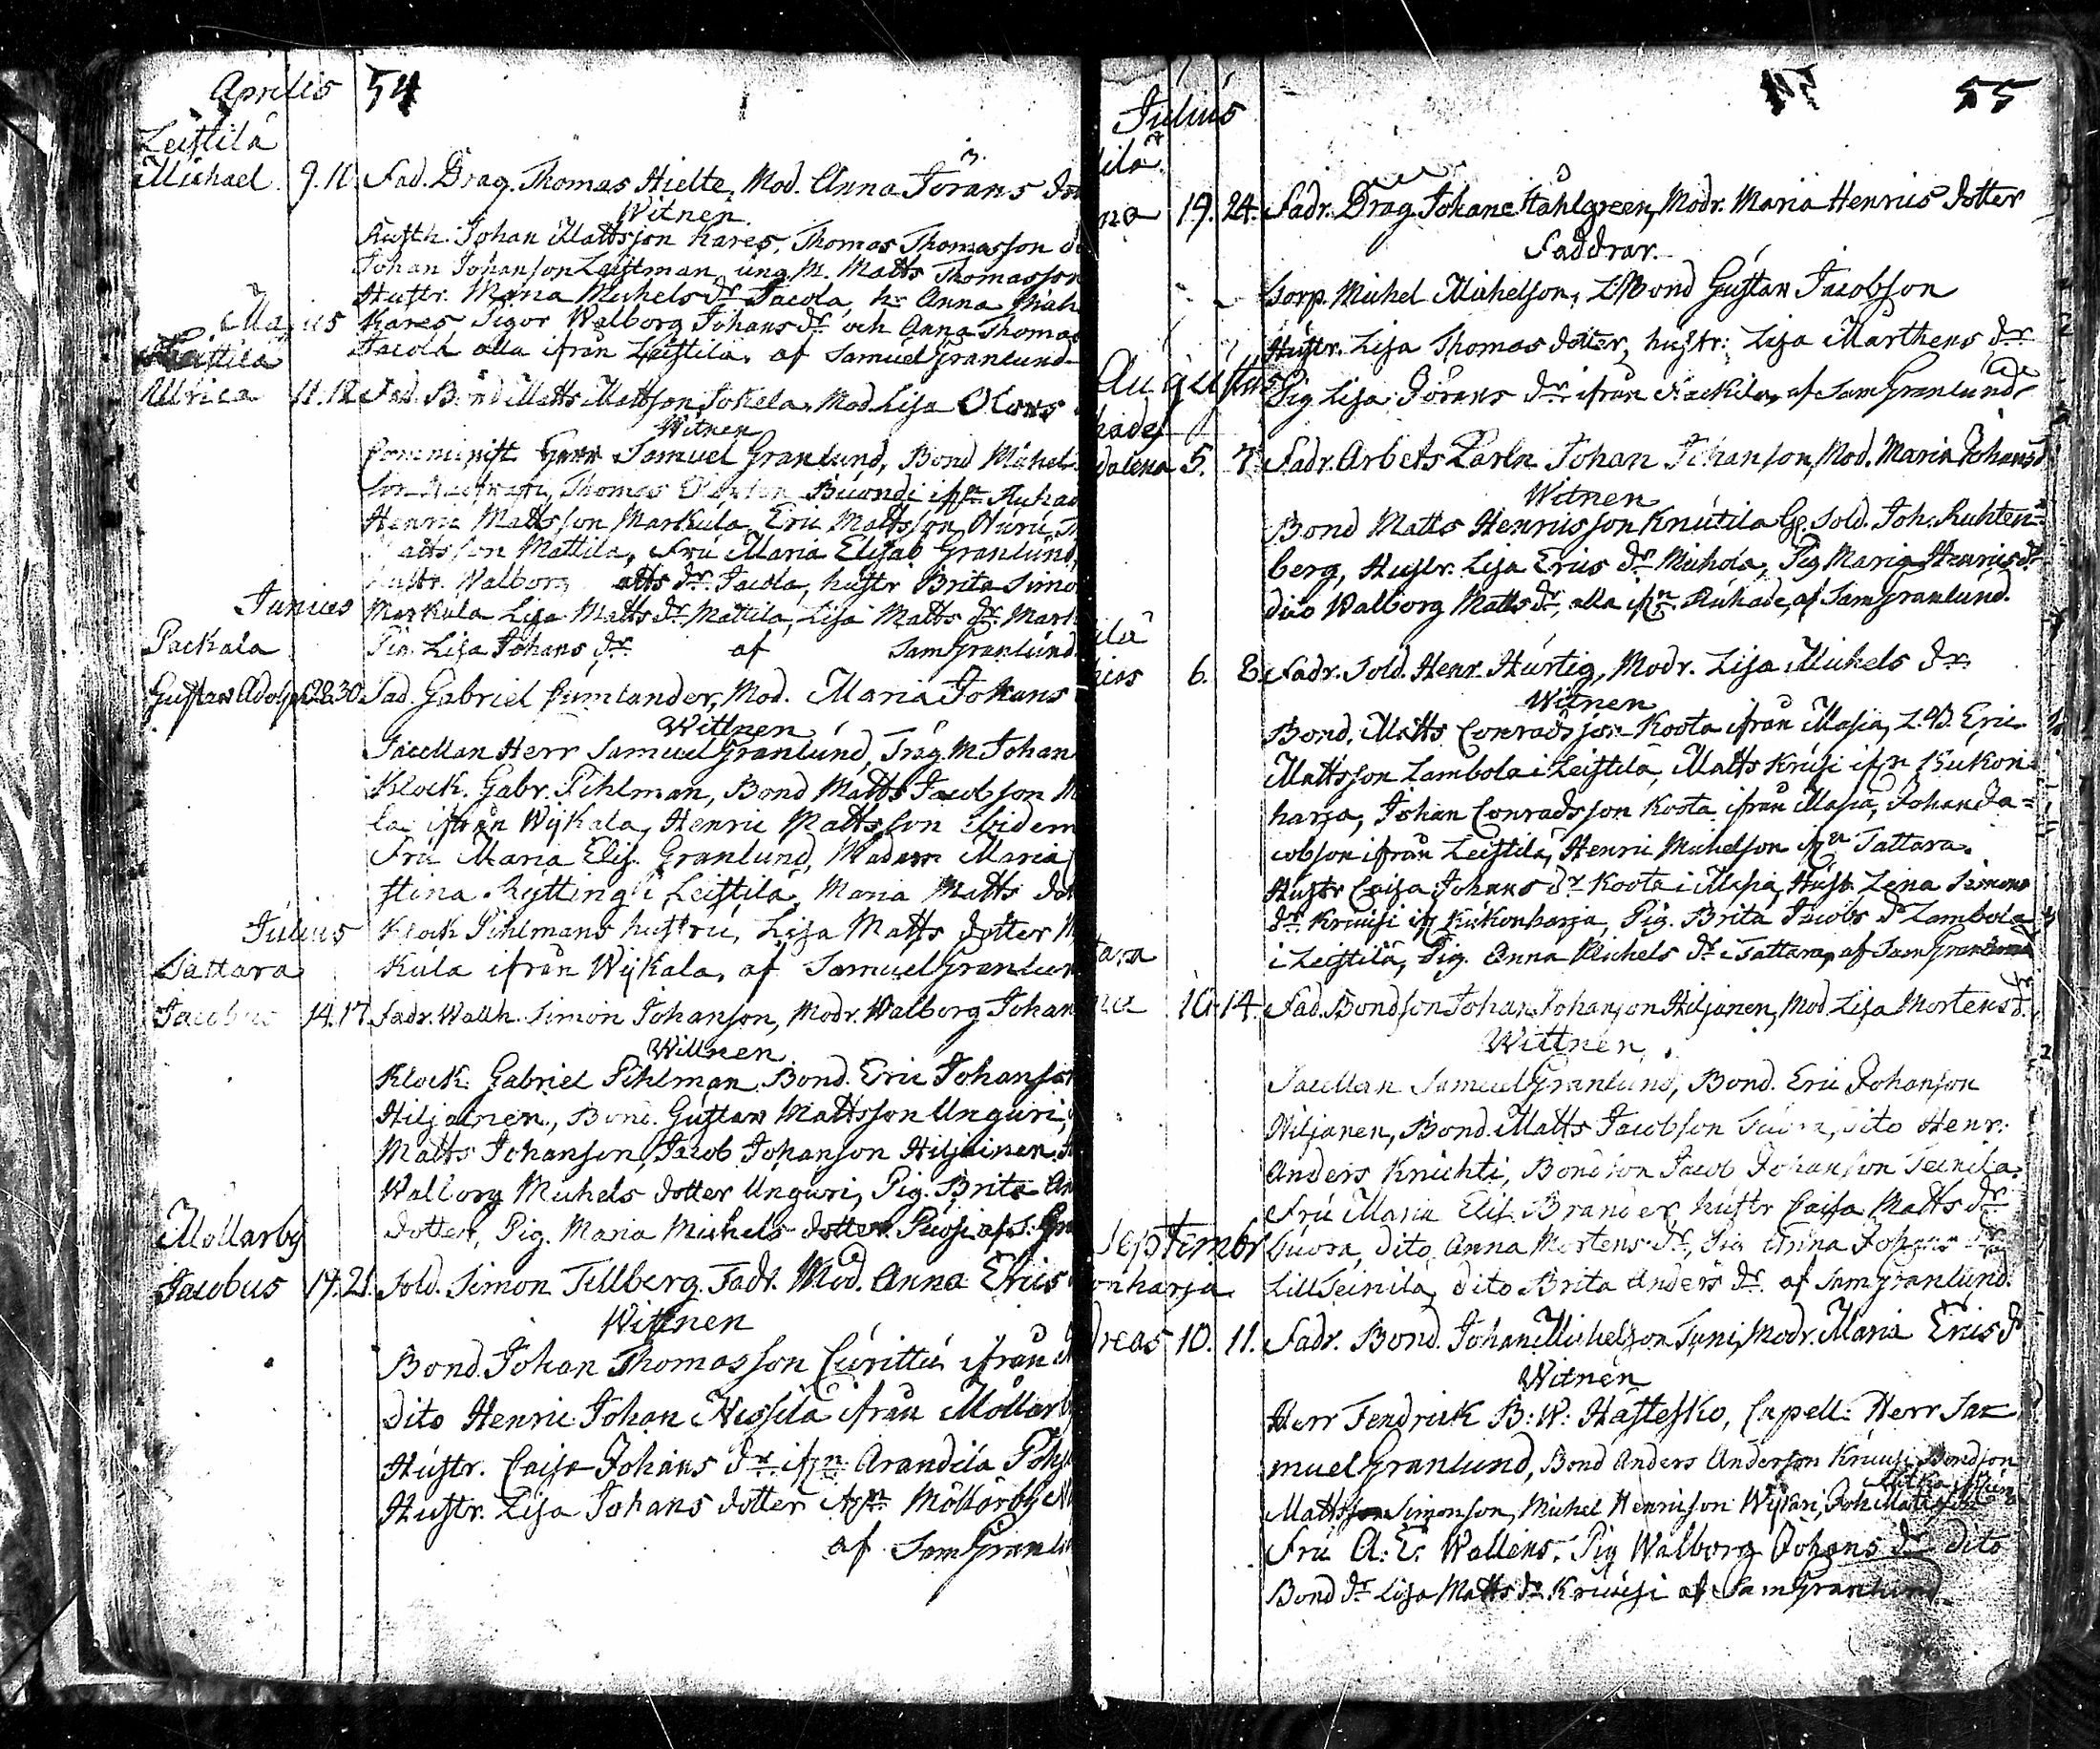 Aprilis 54
Leistilä
Michael 9. 11. Fad. Drag. Thomas Hielte, Mod. Anna Jörans
Witnen
Rusth. Johan Mattsson Kares, Thomas Thomasson
Johan Johanson Leistman, ung M. Matts Thomasson
Hustr. Maria Michels dr Jacola, h: Anna
Majus Kares, Pigor Walborg Johans dr och Anna Thomas
Leistilä Jacola alla ifrån Leistilä. af Samuel Granlund
Ulrica 11. 12. Fad. Bond Matts Mattson Jokela, Mod. Lisa Olofs
Witnen
Comminist. Herr Samuel Granlund, Bond Michel
Thomas
Henric Mattsson Markula, Eric Mattsson
Mattsson Mattila, Fru Maria Elisab Granlund,
Hustr. Walborg Matts dr Jacola, hustr Brita Simo
Junius Markula Lisa Matts dr Mattila, Lisa Matts dr Mark
Packala Pig. Lisa Johans dr af Sam Granlund
Gustav Adolph 28. 30. Fad. Gabriel Cumlander, Mod. Maria Johans
Wittnen
Sacellan Herr Samuel Granlund, Träg. M. Johan
Klock. Gabr. Pihlman, Bond Matts Jacobson
la ifrån Wijkala, Henric Mattsson ibidem
Fru Maria Elis. Granlund, Madam Maria
stina Rytting i Leistilä, Maria Matts dot
Julius Klock Pihlmans hustru, Lisa Matts dotter
Sattara Kula ifrån Wijkala, af Samuel Granlun
Jacobus 14. 17. Fadr. Wallh. Simon Johanson, Modr. Walborg Johan
Wittnen
Klock. Gabriel Pihlman, Bond. Eric Johanson
Hiljainen, Bond. Gustav Mattsson Unguri,
Matts Johanson, Jacob Johanson Hiljainen,
Walborg Michels dotter Unguri, Pig. Brita An
Mollarby dotter, Pig. Maria Michels dotter Piuosi af S. Gra
Jacobus 17. 21. Sold. Simon Tillberg. Fadr. Mod. Anna Erics
Wittnen
Bond. Johan Thomasson Curittu ifrån
dito Henric Johan Nissilä ifrån Mollarb
Hustr. Caisa Johans dr ifrn Arandila
Hustr. Lisa Johans dotter ifrn Mollarby
af Sam Granl
55
Julius
ilä
na 19. 24. Fadr. Drag. Johan Stahlgreen, Modr. Maria Henrics dotter
Faddrar.
Corp. Michel Michelson, Bond Gustav Jacobson
Hustr. Lisa Thomas dotter, hustr: Lisa Marthens dr
Augustus Pig Lisa Jörans dr ifrån af Sam Granlund
hade
dalena 5. 7. Fadr. Arbets Karln Johan Johanson, Mod. Maria Johans d
Witnen
Bond Matts Henricsson Knutila Sold. Joh. Ruhten=
berg, Hustr. Lisa Erics dr Michola, Pig Maria Henrics dr
dito Walborg Matts dr, alla ifrn Ruhade, af Sam Granlund.
ilä
6. 8. Fadr. Sold. Henr. Hurtig, Modr. Lisa Michels dr
Witnen
Bond. Matts Conradsson Koota ifrån Masia, Eric
Mattsson Lambola i Leistilä, Matts Kruusi ifrn Kukon
harja, Johan Conradsson Koota ifrån Masia, Johan Ja=
cobson ifrån Leistilä, Henric Michelson ifrn Tattara.
Hustr Caisa Johans dr Koota i Masia, Hust. Lena Simons
dr Kruusi ifr Kukonharja, Pig. Brita Jacobs dr Lambola
tara i Leistilä, Pig. Anna Michels dr i Tattara, af Sam Granlund
10. 14. Fad. Bondson Johan Johanson Hiljanen, Mod. Lisa Mortens d.
Wittnen
Sacellan Samuel Granlund, Bond. Eric Johanson
Hiljanen, Bond. Matts Jacobson dito Henr.
Anders Knichti, Bondson Jacob Johanson Teinilä.
Fru Maria Elis. Brander, hustr Caisa Matts dr
Septembr dito Anna Mortens dr, Pig Anna Johans dr
onharja Lill Teinilä, dito Brita Anders dr. af Sam Granlund.
dreas 10. 11. Fadr. Bond. Johan Michelson Tuni, Modr. Maria Erics d
Witnen
Herr Fendrick B: W: Hastesko, Capell: Herr Sa=
muel Granlund, Bond Anders Anderson Kruusi, Bondson
Mattsson Simonson, Michel Henricsson Joh. Mattsson
Fru A: E: Wallens. Pig Walborg Johans dr Dito
Bond dr Lisa Matts dr Kruusi af Sam Granlund